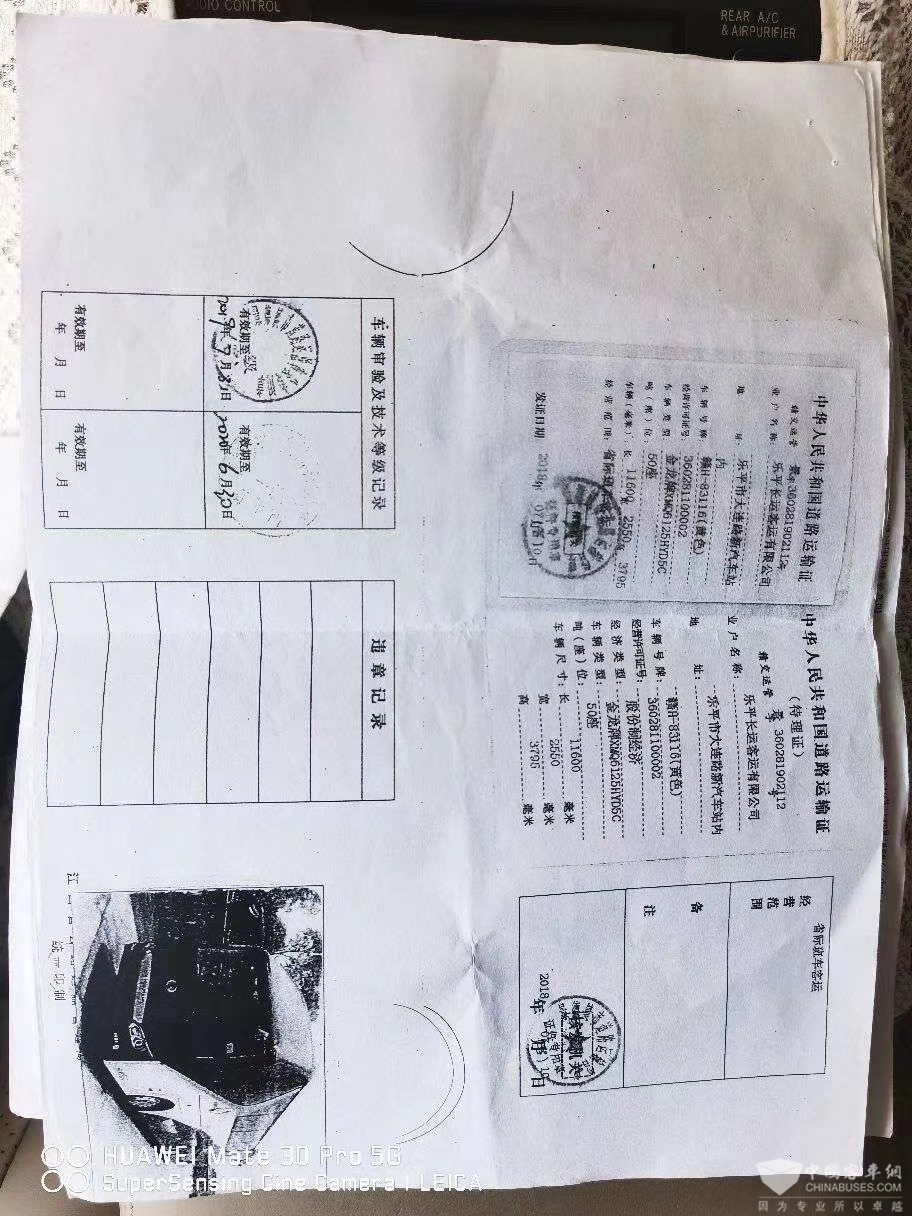 AUDIO CONTROL
REAR A/C
& AIRPURIFIER
中华人民共和国道路运输证
赣交运管 景 字 360281902112号
业户名称: 乐平长运客运有限公司
地 址: 乐平市大连路新汽车站
内
车辆号牌: 赣H-83116(黄色)
经营许可证号: 360281100002
车辆类型: 金龙牌XMQ6125HYD5C
吨(座)位: 50座
车辆(毫米): 长 11600 2550 3795
经营范围: 省际班
发证日期 2018年
中华人民共和国道路运输证
(待理证)
赣交运管 景 字 360281902112 号
业户名称: 乐平长运客运有限公司
地 址: 乐平市大连路新汽车站内
车辆号牌: 赣H-83116(黄色)
经营许可证号: 360281100002
经济类型: 股份制经济
车辆类型: 金龙牌XMQ6125HYD5C
吨(座)位: 50座
车辆尺寸: 长 11600 毫米
宽 2550 毫米
高 3795 毫米
经营范围
省际班车客运
备
注
2018年
车辆审验及技术等级记录
有效期至
2019年 月31日
有效期至
2020年6月30日
有效期至
年 月 日
有效期至
年 月 日
违章记录
江
统一印制
HUAWEI Mate 30 Pro 5G
SuperSensing Cine Camera | LEICA
中国客车网
CHINABUSES.COM
因为专业所以卓越